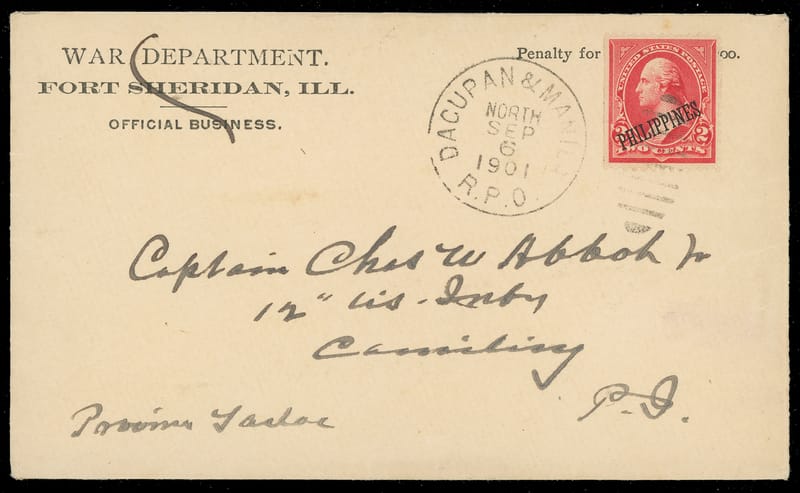 WAR DEPARTMENT.
FORT SHERIDAN, ILL.
OFFICIAL BUSINESS.
Penalty for
00.
DAGUPAN & MANILA
NORTH
SEP
6
1901
R.P.O.
UNITED STATES POSTAGE
PHILIPPINES
2 2
TWO CENTS
Captain Chas W Abbot Jr
12" US. Infty
Camiling
P.I.
Province Tarlac